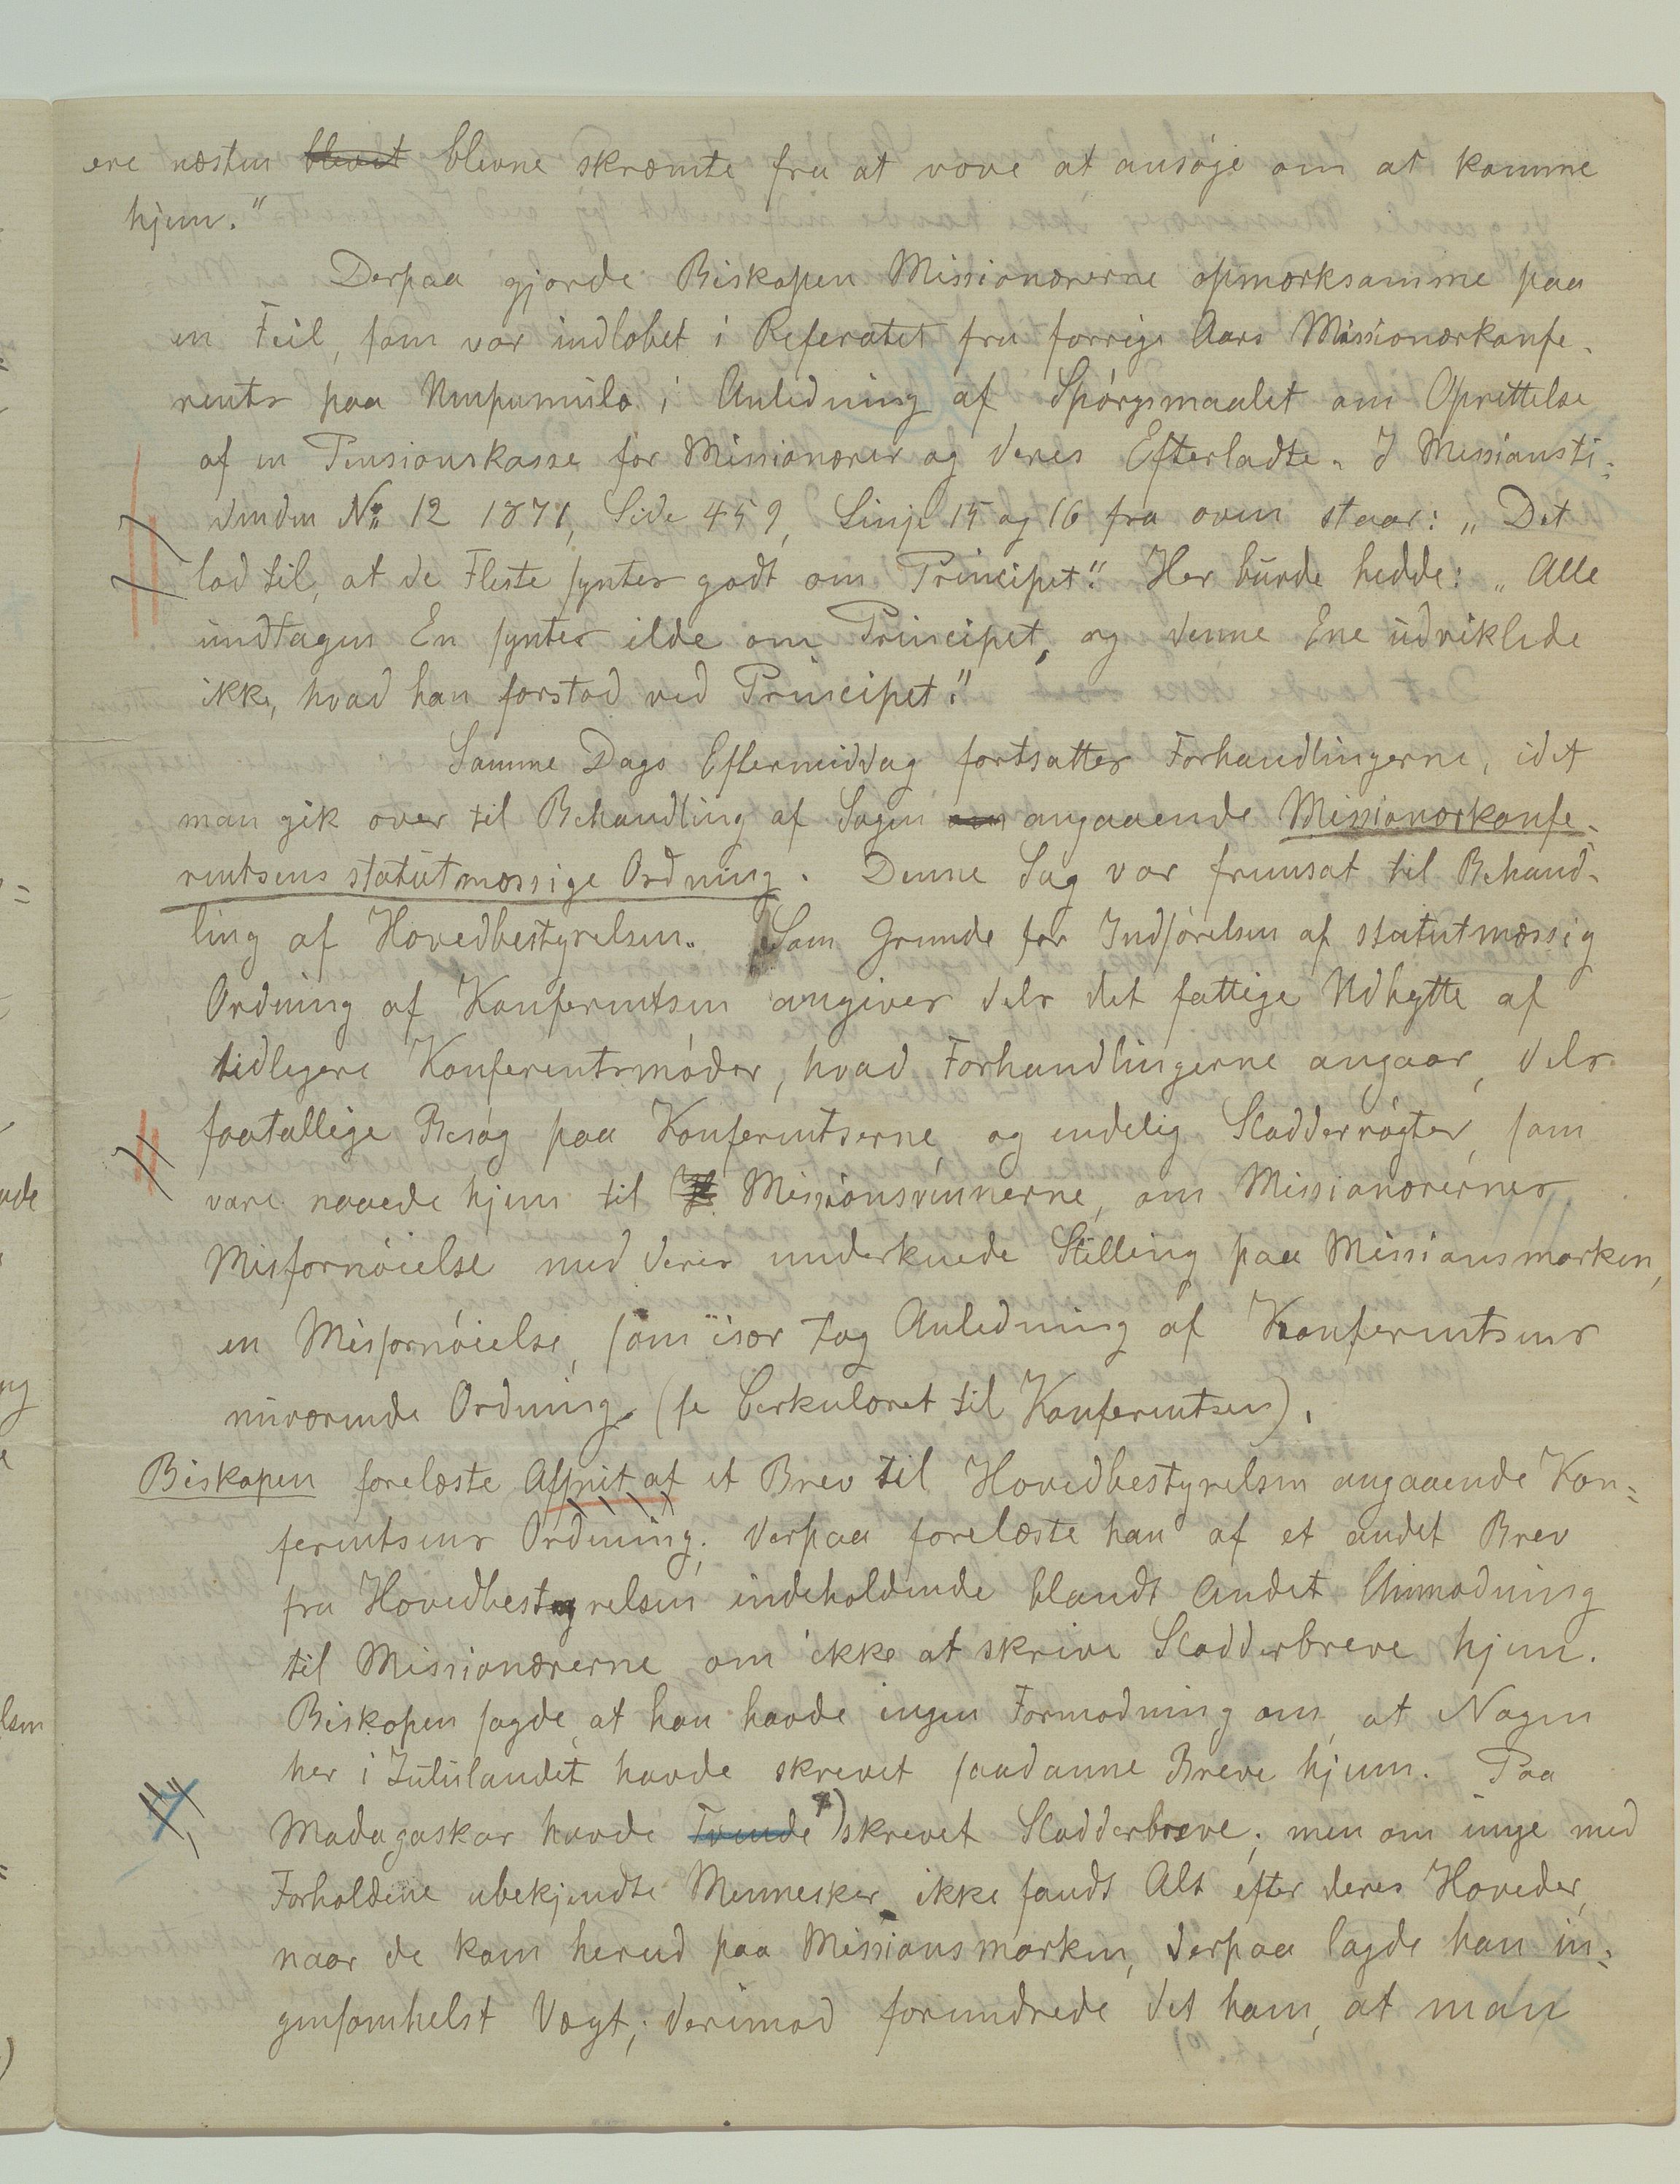 ere næsten blevet blevne skræmte fra at vove at ansøge om at komme
hjem."
Derpaa gjorde Biskopen Missionærerne opmærksomme paa
en Feil, som var indløbet i Referatet fra forrige Aars Missionærkonfe-
rents paa Umpumulo i Anledning af Spørgsmaalet om Oprettelse
af en Pensionskasse for Missionærer og deres Efterladte. I Missionsti-
denden No 12 1871, Side 459, Linje 15 og 16 fra oven staar: „Det
lod til, at de Fleste syntes godt om Principet". Her burde hedde: „Alle
undtagen En syntes ilde om Principet, og denne Ene udviklede
ikke, hvad han forstod ved Principet".
Samme Dags Eftermiddag fortsattes Forhandlingerne, idet
man gik over til Behandling af Sagen om angaaende Missionærkonfe-
rentsens statutmæssige Ordning. Denne Sag var fremsat til Behand-
ling af Hovedbestyrelsen. Som Grunde for Indførelsen af statutmæssig
Ordning af Konferentsen angives dels det fattige Udbytte af
tidligere Konferentsmøder, hvad Forhandlingerne angaar, dels
faatallige Besøg paa Konferentserne, og endelig Sladderrøgter, som
vare naaede hjem til Missionsvennerne, om Missionærernes
Misfornøielse med deres underkuede Stilling paa Missionsmarken,
en Misfornøielse, som især tog Anledning af Konferentsens
nuværende Ordning. (se Cerkulæret til Konferentsen).
Biskopen forelæste Afsnit af et Brev til Hovedbestyrelsen angaaende Kon-
ferentsens Ordning; derpaa forelæste han af et andet Brev
fra Hovedbestyrelsen indeholdende blandt Andet Anmodning
til Missionærerne om ikke at skrive Sladderbreve hjem.
Biskopen sagde, at han havde ingen Formodning om, at Nogen
her i Zululandet havde skrevet saadanne Breve hjem. Paa
Madagaskar havde Tvende *) skrevet Sladderbreve; men om unge med
Forholdene ubekjendte Mennesker ikke fandt Alt efter deres Hoveder,
naar de kom herud paa Missionsmarken, derpaa lagde han in-
gensomhelst Vægt; derimod forundrede det ham, at man